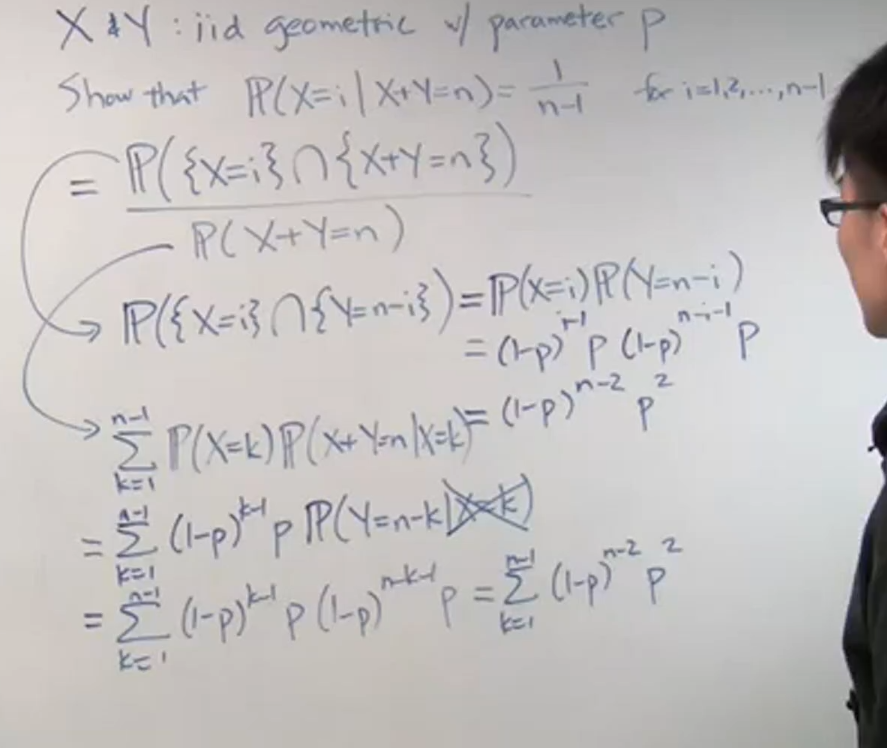 X & Y : iid geometric w/ parameter p
Show that ℙ(X=i | X+Y=n) = 1/(n-1) for i=1,2,...,n-1
= ℙ({X=i}∩{X+Y=n}) / ℙ(X+Y=n)
ℙ({X=i}∩{Y=n-i}) = ℙ(X=i)ℙ(Y=n-i)
= (1-p)^{i-1} p (1-p)^{n-i-1} p
= (1-p)^{n-2} p^2
∑_{k=1}^{n-1} ℙ(X=k)ℙ(X+Y=n|X=k)
= ∑_{k=1}^{n-1} (1-p)^{k-1} p ℙ(Y=n-k|X=k)
= ∑_{k=1}^{n-1} (1-p)^{k-1} p (1-p)^{n-k-1} p = ∑_{k=1}^{n-1} (1-p)^{n-2} p^2